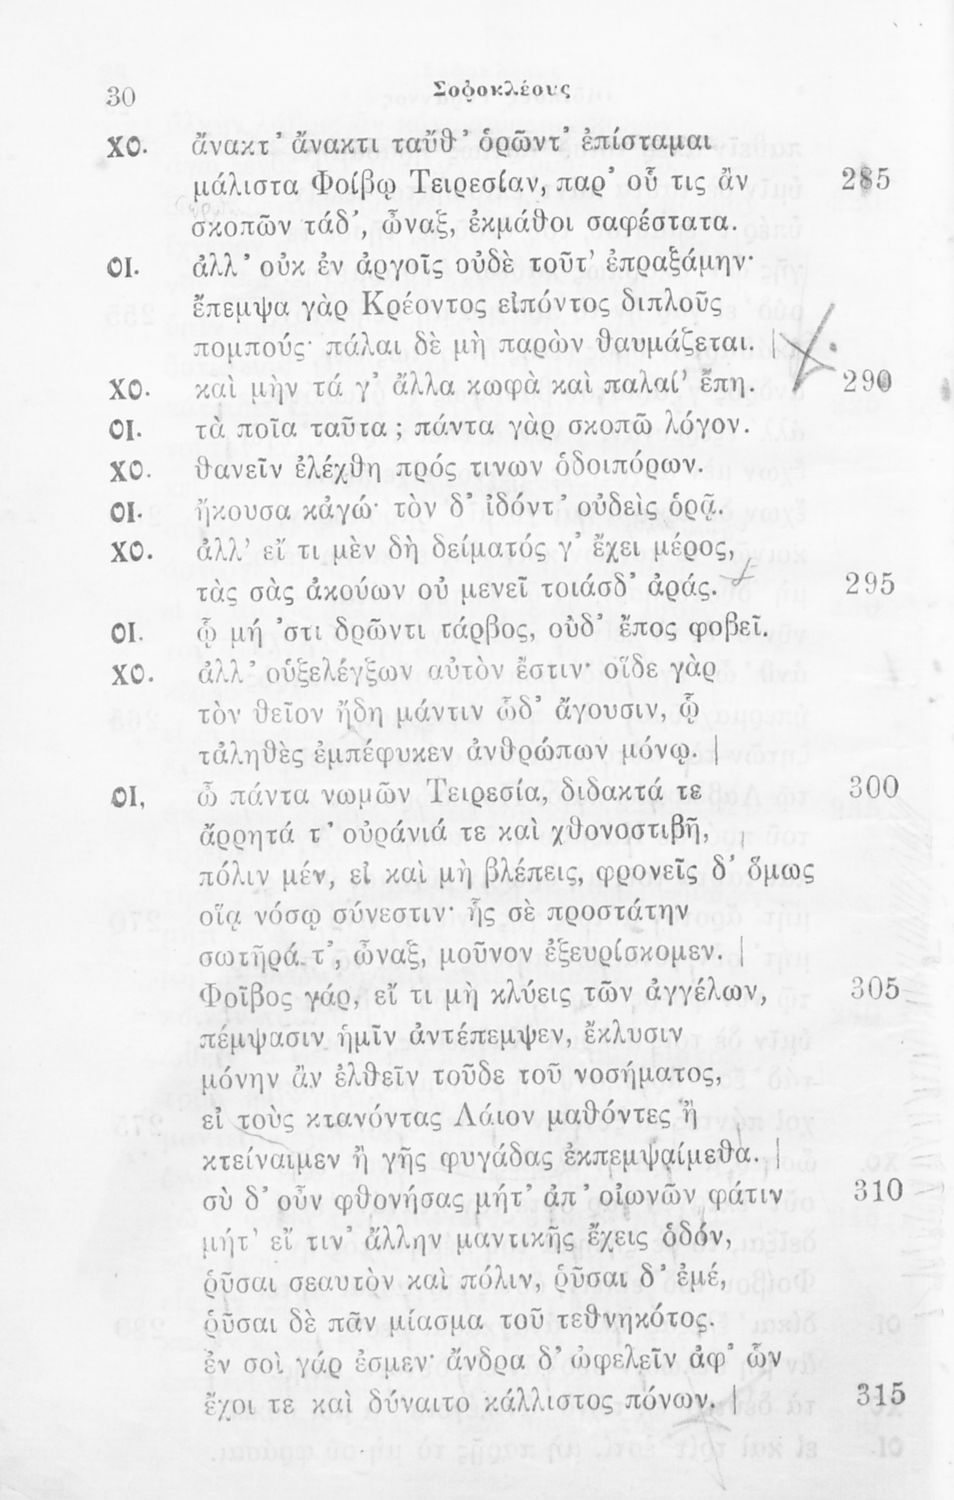 30 Σοφοκλέους
ΧΟ. ἄνακτ' ἄνακτι ταὔθ' ὁρῶντ' ἐπίσταμαι
μάλιστα Φοίβῳ Τειρεσίαν, παρ' οὗ τις ἂν 285
σκοπῶν τάδ', ὦναξ, ἐκμάθοι σαφέστατα.
ΟΙ. ἀλλ' οὐκ ἐν ἀργοῖς οὐδὲ τοῦτ' ἐπραξάμην·
ἔπεμψα γὰρ Κρέοντος εἰπόντος διπλοῦς
πομπούς· πάλαι δὲ μὴ παρὼν θαυμάζεται.
ΧΟ. καὶ μὴν τά γ' ἄλλα κωφὰ καὶ παλαί' ἔπη. 290
ΟΙ. τὰ ποῖα ταῦτα; πάντα γὰρ σκοπῶ λόγον.
ΧΟ. θανεῖν ἐλέχθη πρός τινων ὁδοιπόρων.
ΟΙ. ἤκουσα κἀγώ· τὸν δ' ἰδόντ' οὐδεὶς ὁρᾷ.
ΧΟ. ἀλλ' εἴ τι μὲν δὴ δείματός γ' ἔχει μέρος,
τὰς σὰς ἀκούων οὐ μενεῖ τοιάσδ' ἀράς. 295
ΟΙ. ᾧ μή 'στι δρῶντι τάρβος, οὐδ' ἔπος φοβεῖ.
ΧΟ. ἀλλ' οὑξελέγξων αὐτὸν ἔστιν· οἵδε γὰρ
τὸν θεῖον ἤδη μάντιν ὧδ' ἄγουσιν, ᾧ
τἀληθὲς ἐμπέφυκεν ἀνθρώπων μόνῳ.
ΟΙ, ὦ πάντα νωμῶν Τειρεσία, διδακτά τε 300
ἄρρητά τ' οὐράνιά τε καὶ χθονοστιβῆ,
πόλιν μέν, εἰ καὶ μὴ βλέπεις, φρονεῖς δ' ὅμως
οἵᾳ νόσῳ σύνεστιν· ἧς σὲ προστάτην
σωτῆρά τ', ὦναξ, μοῦνον ἐξευρίσκομεν.
Φοῖβος γάρ, εἴ τι μὴ κλύεις τῶν ἀγγέλων, 305
πέμψασιν ἡμῖν ἀντέπεμψεν, ἔκλυσιν
μόνην ἂν ἐλθεῖν τοῦδε τοῦ νοσήματος,
εἰ τοὺς κτανόντας Λάιον μαθόντες ἢ
κτείναιμεν ἢ γῆς φυγάδας ἐκπεμψαίμεθα.
σὺ δ' οὖν φθονήσας μήτ' ἀπ' οἰωνῶν φάτιν 310
μήτ' εἴ τιν' ἄλλην μαντικῆς ἔχεις ὁδόν,
ῥῦσαι σεαυτὸν καὶ πόλιν, ῥῦσαι δ' ἐμέ,
ῥῦσαι δὲ πᾶν μίασμα τοῦ τεθνηκότος.
ἐν σοὶ γάρ ἐσμεν· ἄνδρα δ' ὠφελεῖν ἀφ' ὧν
ἔχοι τε καὶ δύναιτο κάλλιστος πόνων. 315